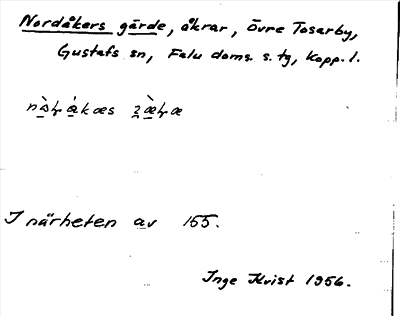 Nordåkers gärde, åkrar, Övre Tosarby,
Gustafs sn, Falu doms. s. tg, Kopp. l.
I närheten av 155.
Inge Kvist 1956.